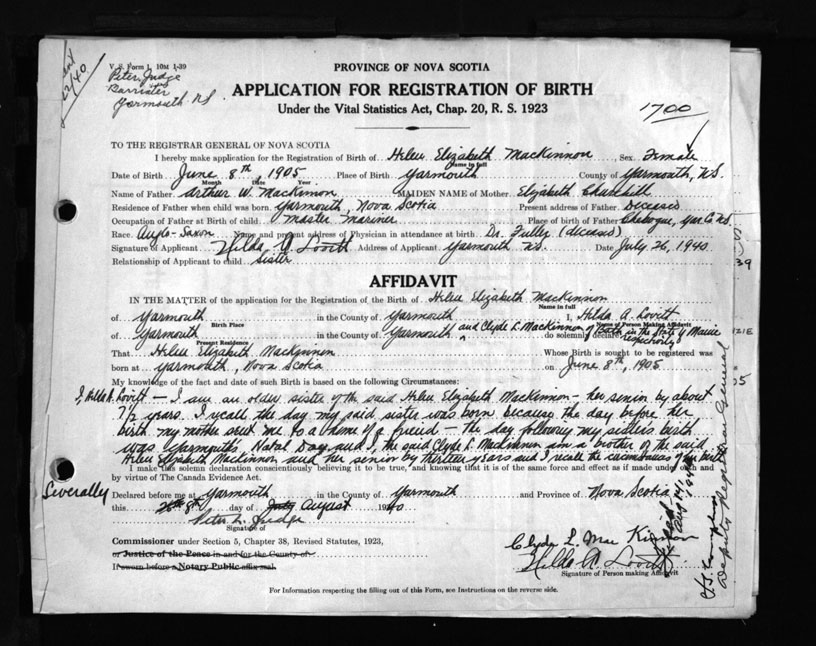 V. S. Form 1, 10M 1-39
Peter Judge
Barrister
Yarmouth N.S.
PROVINCE OF NOVA SCOTIA
APPLICATION FOR REGISTRATION OF BIRTH
Under the Vital Statistics Act, Chap. 20, R. S. 1923
1700
TO THE REGISTRAR GENERAL OF NOVA SCOTIA
I hereby make application for the Registration of Birth of Helen Elizabeth MacKinnon Sex Female
Name in full
Date of Birth June 8th, 1905 Place of Birth Yarmouth County of Yarmouth, N.S.
Month Date Year
Name of Father Arthur W. MacKinnon MAIDEN NAME of Mother Elizabeth Churchill
Residence of Father when child was born Yarmouth, Nova Scotia Present address of Father Deceased
Occupation of Father at Birth of child Master Mariner Place of birth of Father Chebogue, Yar. Co. N.S.
Race. Anglo-Saxon Name and present address of Physician in attendance at birth Dr. Fuller (deceased)
Signature of Applicant Hilda A Lovitt Address of Applicant Yarmouth N.S. Date July 26, 1940
Relationship of Applicant to child sister
39
AFFIDAVIT
IN THE MATTER of the application for the Registration of the Birth of Helen Elizabeth MacKinnon
Name in full
of Yarmouth in the County of Yarmouth I, Hilda A. Lovitt
Birth Place Name of Person Making Affidavit
of Yarmouth in the County of Yarmouth, and Clyde L. MacKinnon of Bath in the State of Maine respectively do solemnly declare
Present Residence
That Helen Elizabeth MacKinnon Whose Birth is sought to be registered was
born at Yarmouth, Nova Scotia on June 8th, 1905
My knowledge of the fact and date of such Birth is based on the following Circumstances:
I, Hilda A. Lovitt — I am an older sister of the said Helen Elizabeth MacKinnon - her senior by about
7½ years. I recall the day my said sister was born because the day before her
birth my mother sent me to a home of a friend — the day following my sisters birth
was Yarmouth's Natal Day and I, the said Clyde L. MacKinnon am a brother of the said
Helen Elizabeth MacKinnon and her senior by thirteen years and I recall the circumstances of her birth
I make this solemn declaration conscientiously believing it to be true, and knowing that it is of the same force and effect as if made under oath and
by virtue of The Canada Evidence Act.
Severally
Declared before me at Yarmouth in the County of Yarmouth and Province of Nova Scotia
this 26th 8th day of July August 1940
Peter L. Judge
Signature of
Commissioner under Section 5, Chapter 38, Revised Statutes, 1923,
or Justice of the Peace in and for the County of
If sworn before a Notary Public affix seal
Clyde L. MacKinnon
Hilda A Lovitt
Signature of Person making Affidavit
Deputy Registrar General
For Information respecting the filling out of this Form, see Instructions on the reverse side.